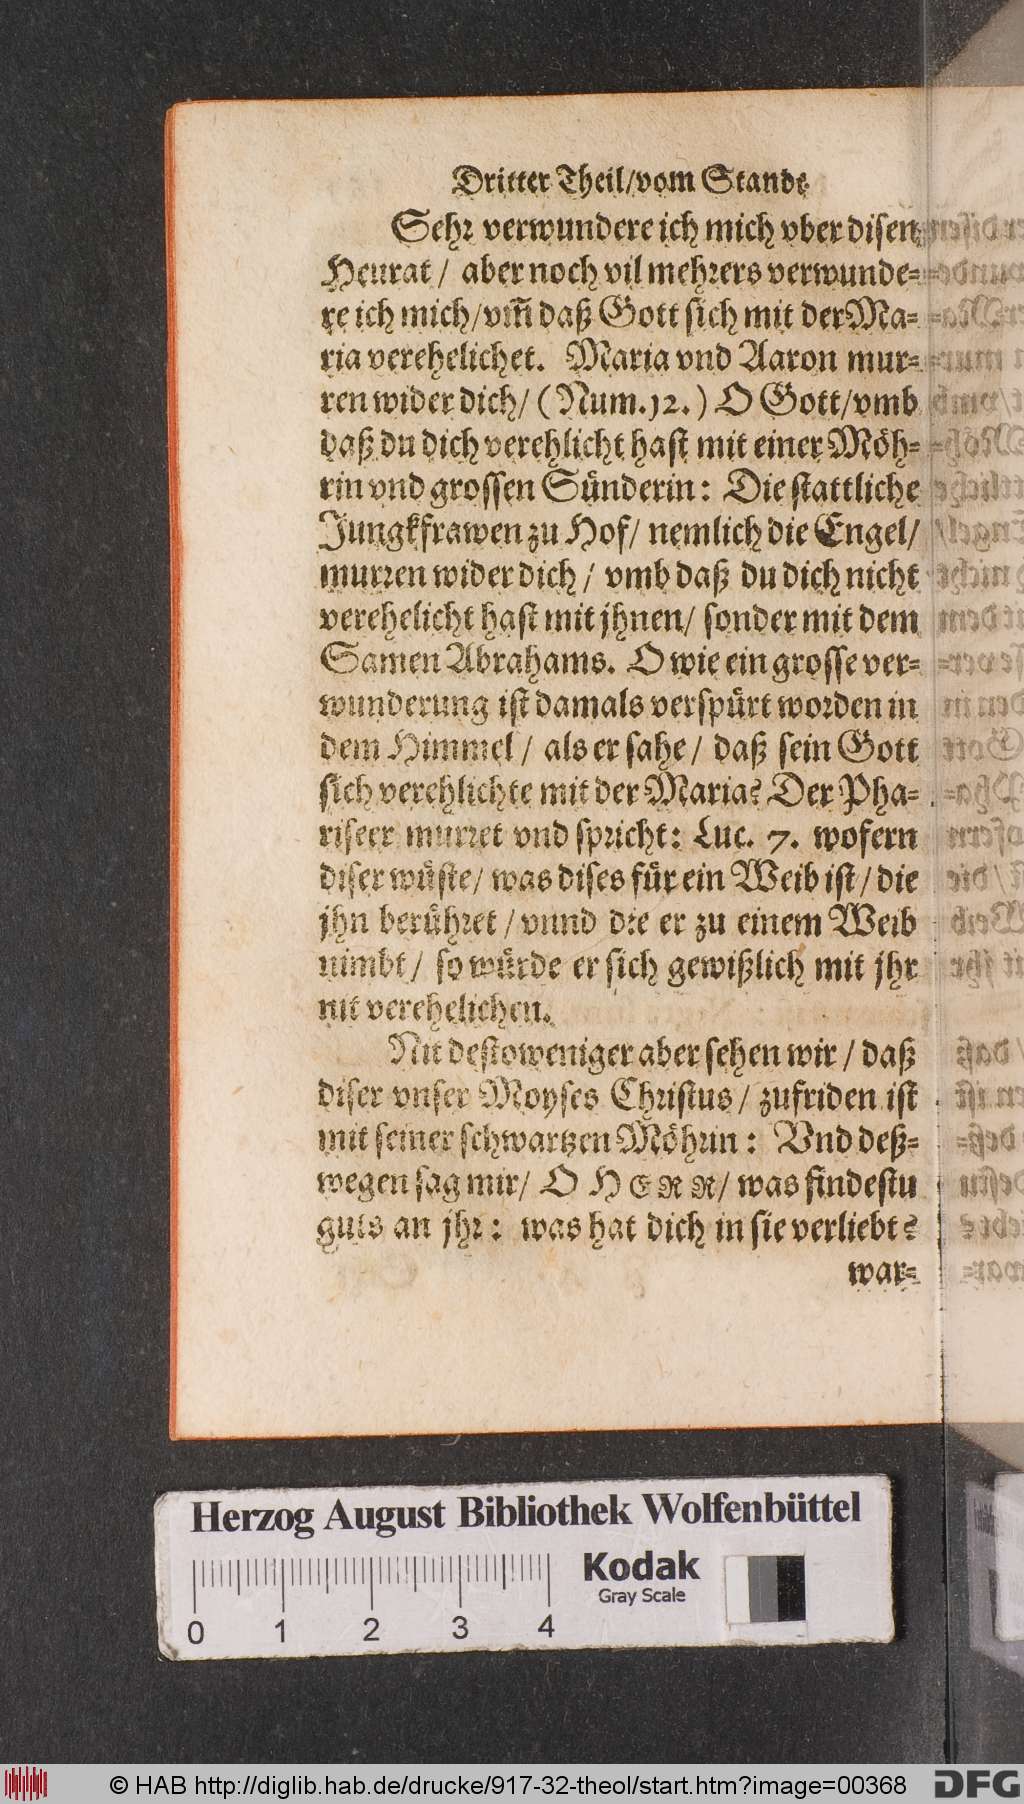 Dritter Theil/vom Stande
Sehr verwundere ich mich vber disen
Heurat / aber noch vil mehrers verwunde-
re ich mich/vm̃ daß Gott sich mit der Ma-
ria verehelichet. Maria vnd Aaron mur-
ren wider dich/ (Num.12.) O Gott/vmb
daß du dich verehlicht hast mit einer Möh-
rin vnd grossen Sünderin: Die stattliche
Jungkfrawen zu Hof/ nemlich die Engel/
murren wider dich / vmb daß du dich nicht
verehelicht hast mit jhnen/ sonder mit dem
Samen Abrahams. O wie ein grosse ver-
wunderung ist damals verspürt worden in
dem Himmel / als er sahe / daß sein Gott
sich verehlichte mit der Maria? Der Pha-
riseer murret vnd spricht: Luc. 7. wofern
diser wüste/ was dises für ein Weib ist / die
jhn berühret / vnnd die er zu einem Weib
nimbt / so würde er sich gewißlich mit jhr
nit verehelichen.
Nit destoweniger aber sehen wir / daß
diser vnser Moyses Christus / zufriden ist
mit seiner schwartzen Möhrin : Vnd deß-
wegen sag mir/ O HERR/ was findestu
guts an jhr : was hat dich in sie verliebt?
war-
Herzog August Bibliothek Wolfenbüttel
Kodak
Gray Scale
0 1 2 3 4
© HAB http://diglib.hab.de/drucke/917-32-theol/start.htm?image=00368
DFG